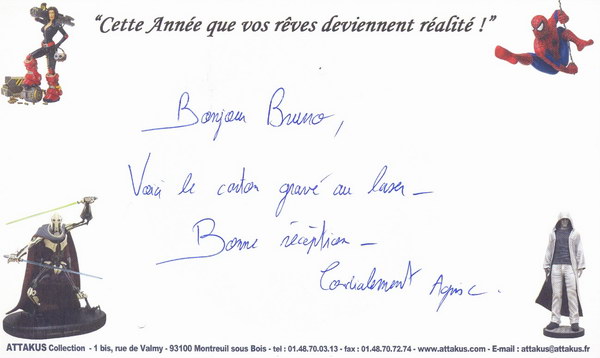 “Cette Année que vos rêves deviennent réalité !”
Bonjour Bruno,
Voici le carton gravé au laser –
Bonne réception –
Cordialement Agnès C.
ATTAKUS Collection - 1 bis, rue de Valmy - 93100 Montreuil sous Bois - tel : 01.48.70.03.13 - fax : 01.48.70.72.74 - www.attakus.com - E-mail : attakus@attakus.fr